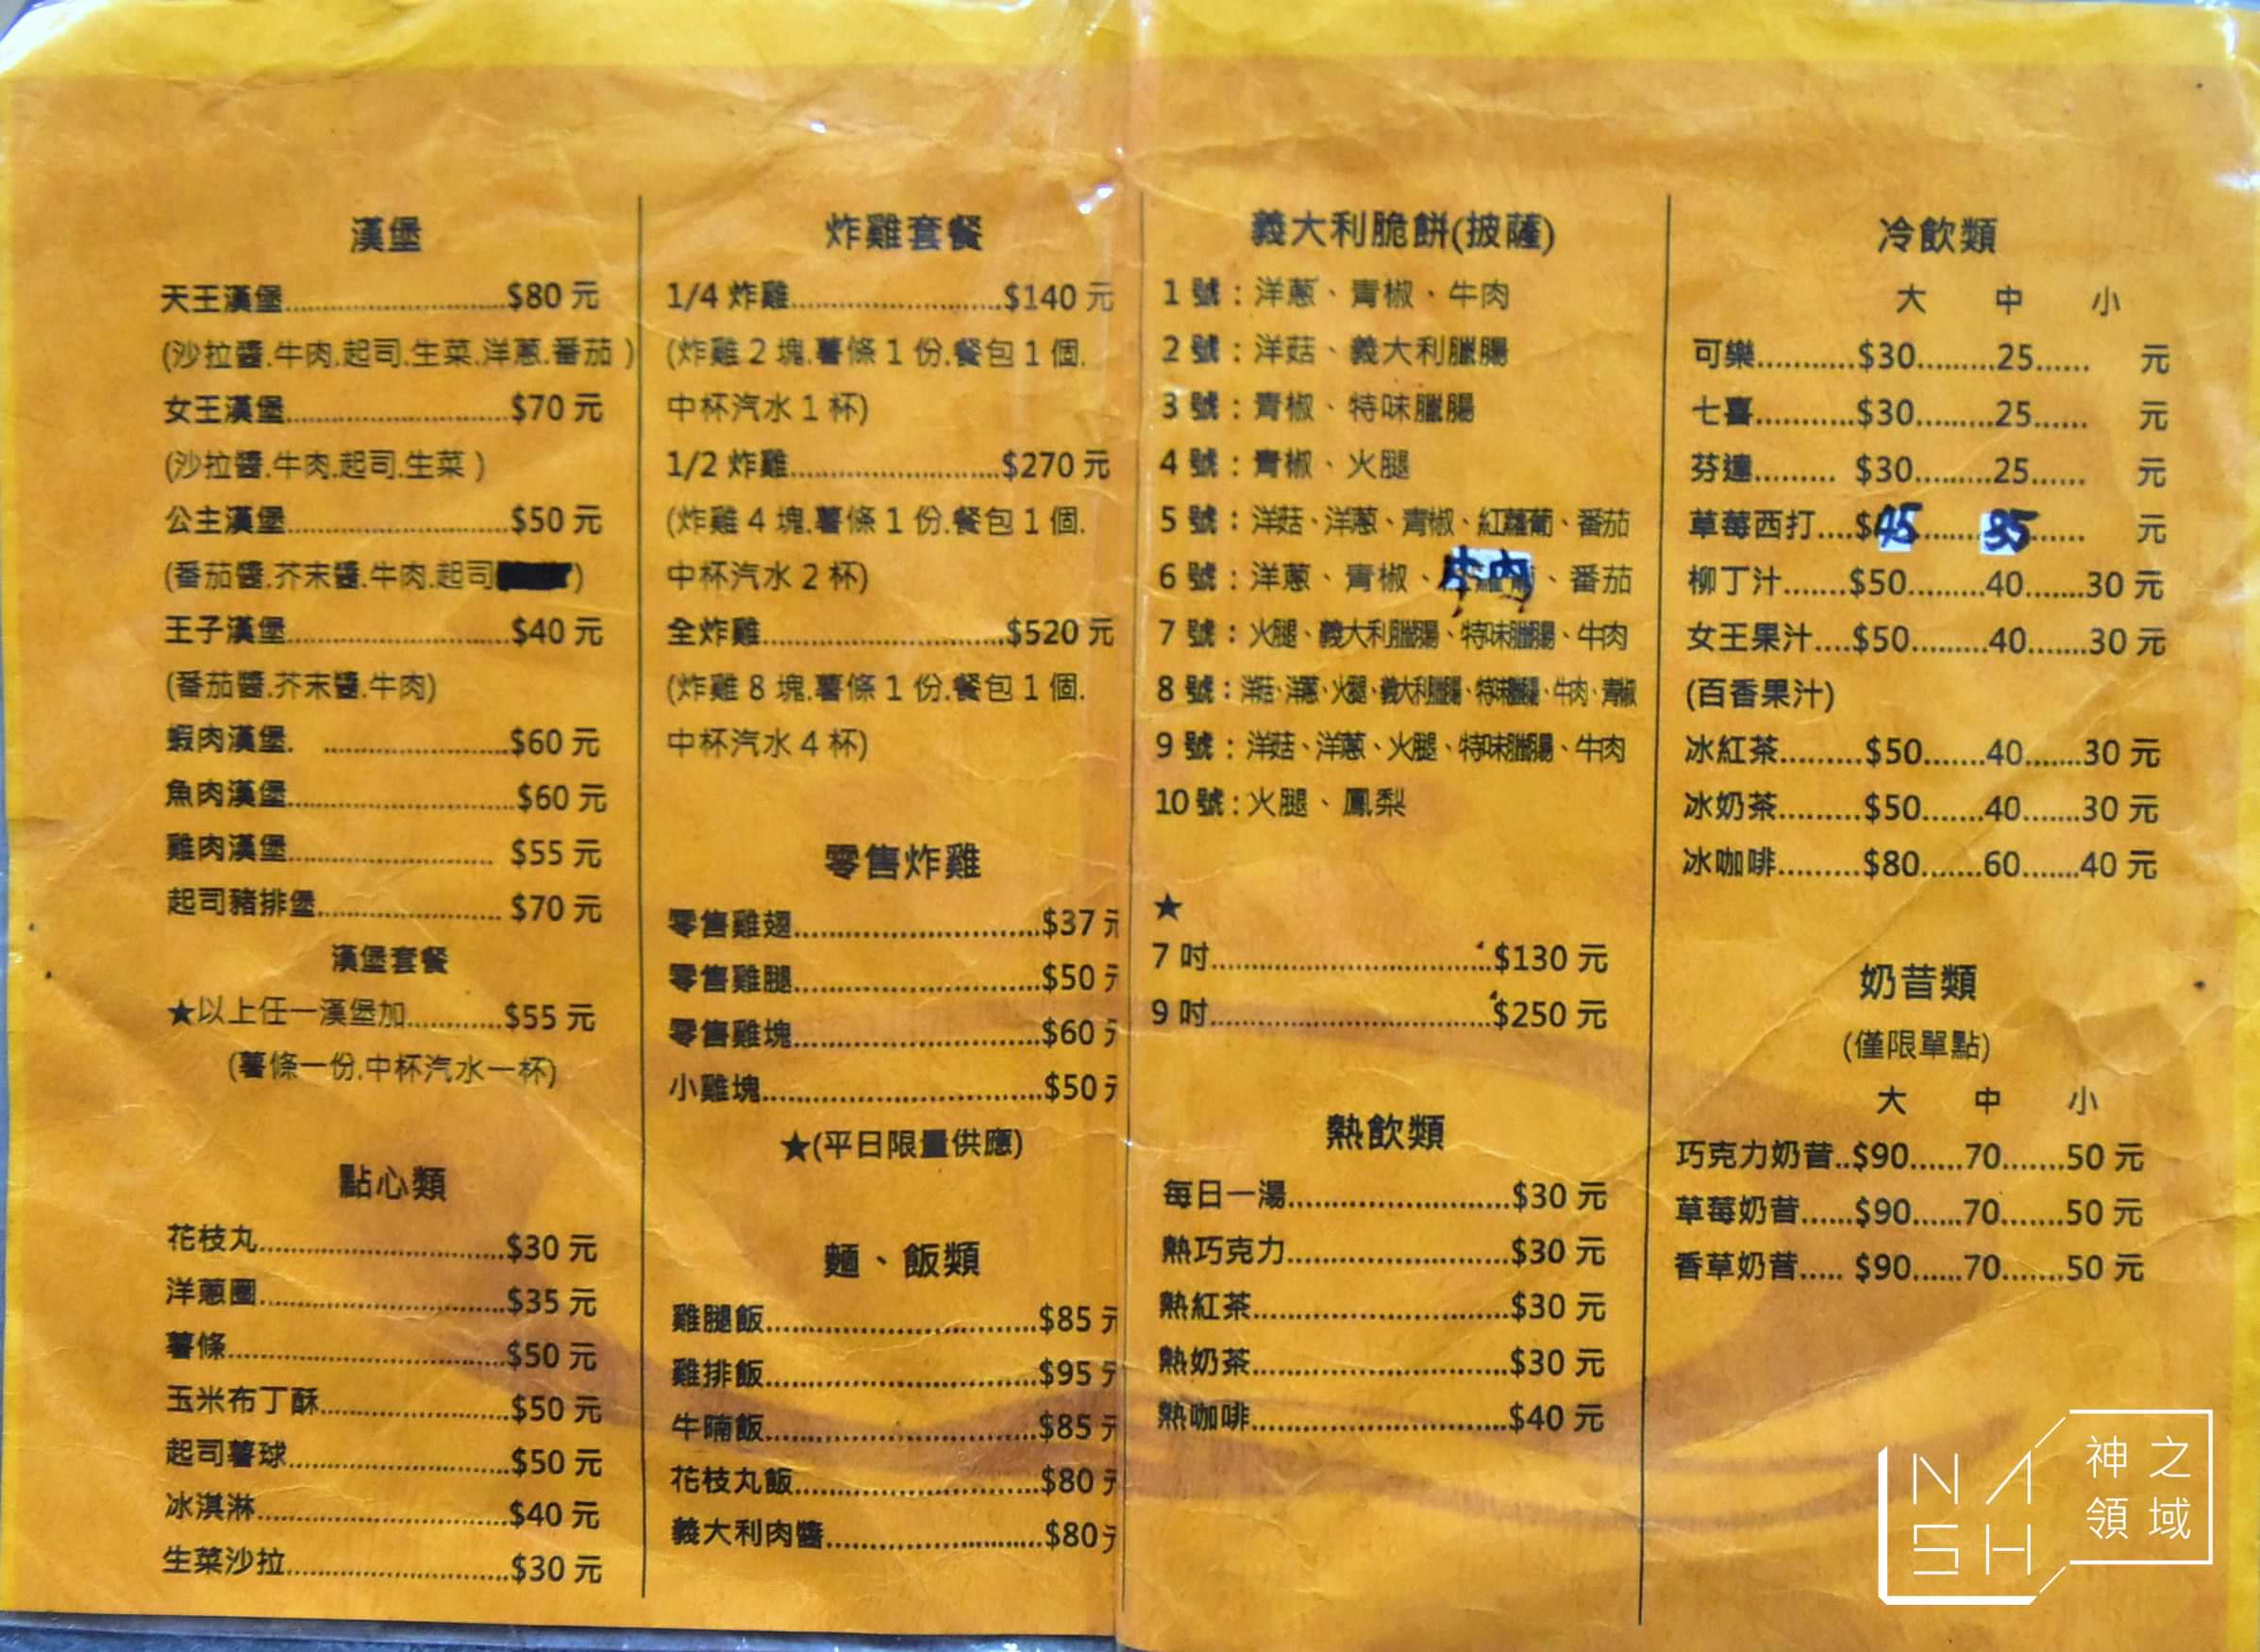 漢堡
天王漢堡..............................$80 元
(沙拉醬.牛肉.起司.生菜.洋蔥.番茄 )
女王漢堡..............................$70 元
(沙拉醬.牛肉.起司.生菜 )
公主漢堡..............................$50 元
(番茄醬.芥末醬.牛肉.起司 )
王子漢堡..............................$40 元
(番茄醬.芥末醬.牛肉)
蝦肉漢堡. .........................$60 元
魚肉漢堡..............................$60 元
雞肉漢堡............................ $55 元
起司豬排堡......................... $70 元
漢堡套餐
★以上任一漢堡加............$55 元
(薯條一份.中杯汽水一杯)
點心類
花枝丸.................................$30 元
洋蔥圈.................................$35 元
薯條.....................................$50 元
玉米布丁酥.........................$50 元
起司薯球..............................$50 元
冰淇淋.................................$40 元
生菜沙拉..............................$30 元
炸雞套餐
1/4 炸雞............................$140 元
(炸雞 2 塊.薯條 1 份.餐包 1 個.
中杯汽水 1 杯)
1/2 炸雞............................$270 元
(炸雞 4 塊.薯條 1 份.餐包 1 個.
中杯汽水 2 杯)
全炸雞................................$520 元
(炸雞 8 塊.薯條 1 份.餐包 1 個.
中杯汽水 4 杯)
零售炸雞
零售雞翅...............................$37 元
零售雞腿...............................$50 元
零售雞塊...............................$60 元
小雞塊...................................$50 元
★(平日限量供應)
麵、飯類
雞腿飯..................................$85 元
雞排飯..................................$95 元
牛腩飯..................................$85 元
花枝丸飯...............................$80 元
義大利肉醬...........................$80元
義大利脆餅(披薩)
1 號：洋蔥、青椒、牛肉
2 號：洋菇、義大利臘腸
3 號：青椒、特味臘腸
4 號：青椒、火腿
5 號：洋菇、洋蔥、青椒、紅蘿蔔、番茄
6 號：洋蔥、青椒、牛肉、番茄
7 號：火腿、義大利臘腸、特味臘腸、牛肉
8 號：洋菇、洋蔥、火腿、義大利臘腸、特味臘腸、牛肉、青椒
9 號：洋菇、洋蔥、火腿、特味臘腸、牛肉
10 號：火腿、鳳梨
★
7 吋.....................................$130 元
9 吋.....................................$250 元
熱飲類
每日一湯.............................$30 元
熱巧克力.............................$30 元
熱紅茶.................................$30 元
熱奶茶.................................$30 元
熱咖啡.................................$40 元
冷飲類
大 中 小
可樂............$30.........25...... 元
七喜............$30.........25...... 元
芬達......... $30.........25...... 元
草莓西打....$45.........35...... 元
柳丁汁.......$50.........40.......30 元
女王果汁....$50.........40.......30 元
(百香果汁)
冰紅茶.........$50.......40.......30 元
冰奶茶.........$50.......40.......30 元
冰咖啡.........$80.......60.......40 元
奶昔類
(僅限單點)
大 中 小
巧克力奶昔..$90......70.......50 元
草莓奶昔......$90......70.......50 元
香草奶昔..... $90......70.......50 元
NASH
神之
領域